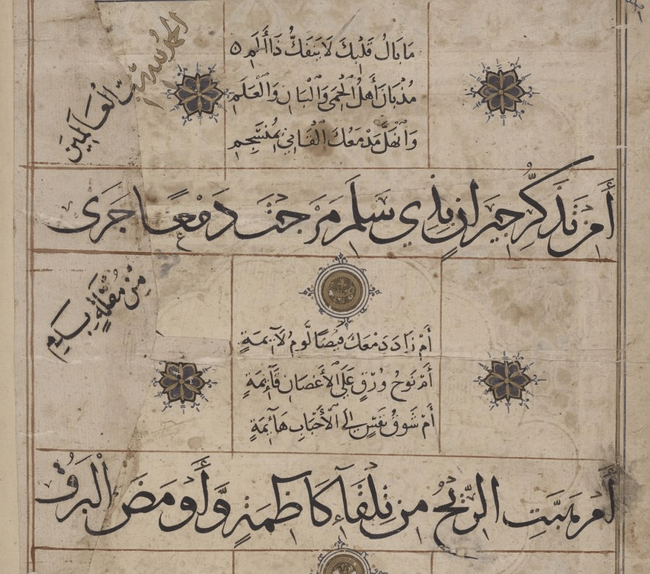 مَا بَالُ قَلْبِكَ لَا يَنْفَكُّ ذَا أَلَمِ
مُذْ بَانَ أَهْلُ الْحِمَى وَالْبَانِ وَالْعَلَمِ
وَانْهَلَّ مَدْمَعُكَ الْقَانِي بِمُنْسَجِمِ
الْعَالَمِينَ
أَمِنْ تَذَكُّرِ جِيرَانٍ بِذِي سَلَمِ مَزَجْتَ دَمْعًا جَرَى
مِنْ مُقْلَةٍ بِدَمِ
أَمْ زَادَ دَمْعَكَ فَيْضًا لَوْمُ لَائِمَةٍ
أَمْ نَوْحُ وُرْقٍ عَلَى الْأَغْصَانِ قَائِمَةٍ
أَمْ شَوْقُ نَفْسٍ إِلَى الْأَحْبَابِ هَائِمَةٍ
أَمْ هَبَّتِ الرِّيحُ مِنْ تِلْقَاءِ كَاظِمَةٍ وَأَوْمَضَ الْبَرْقُ